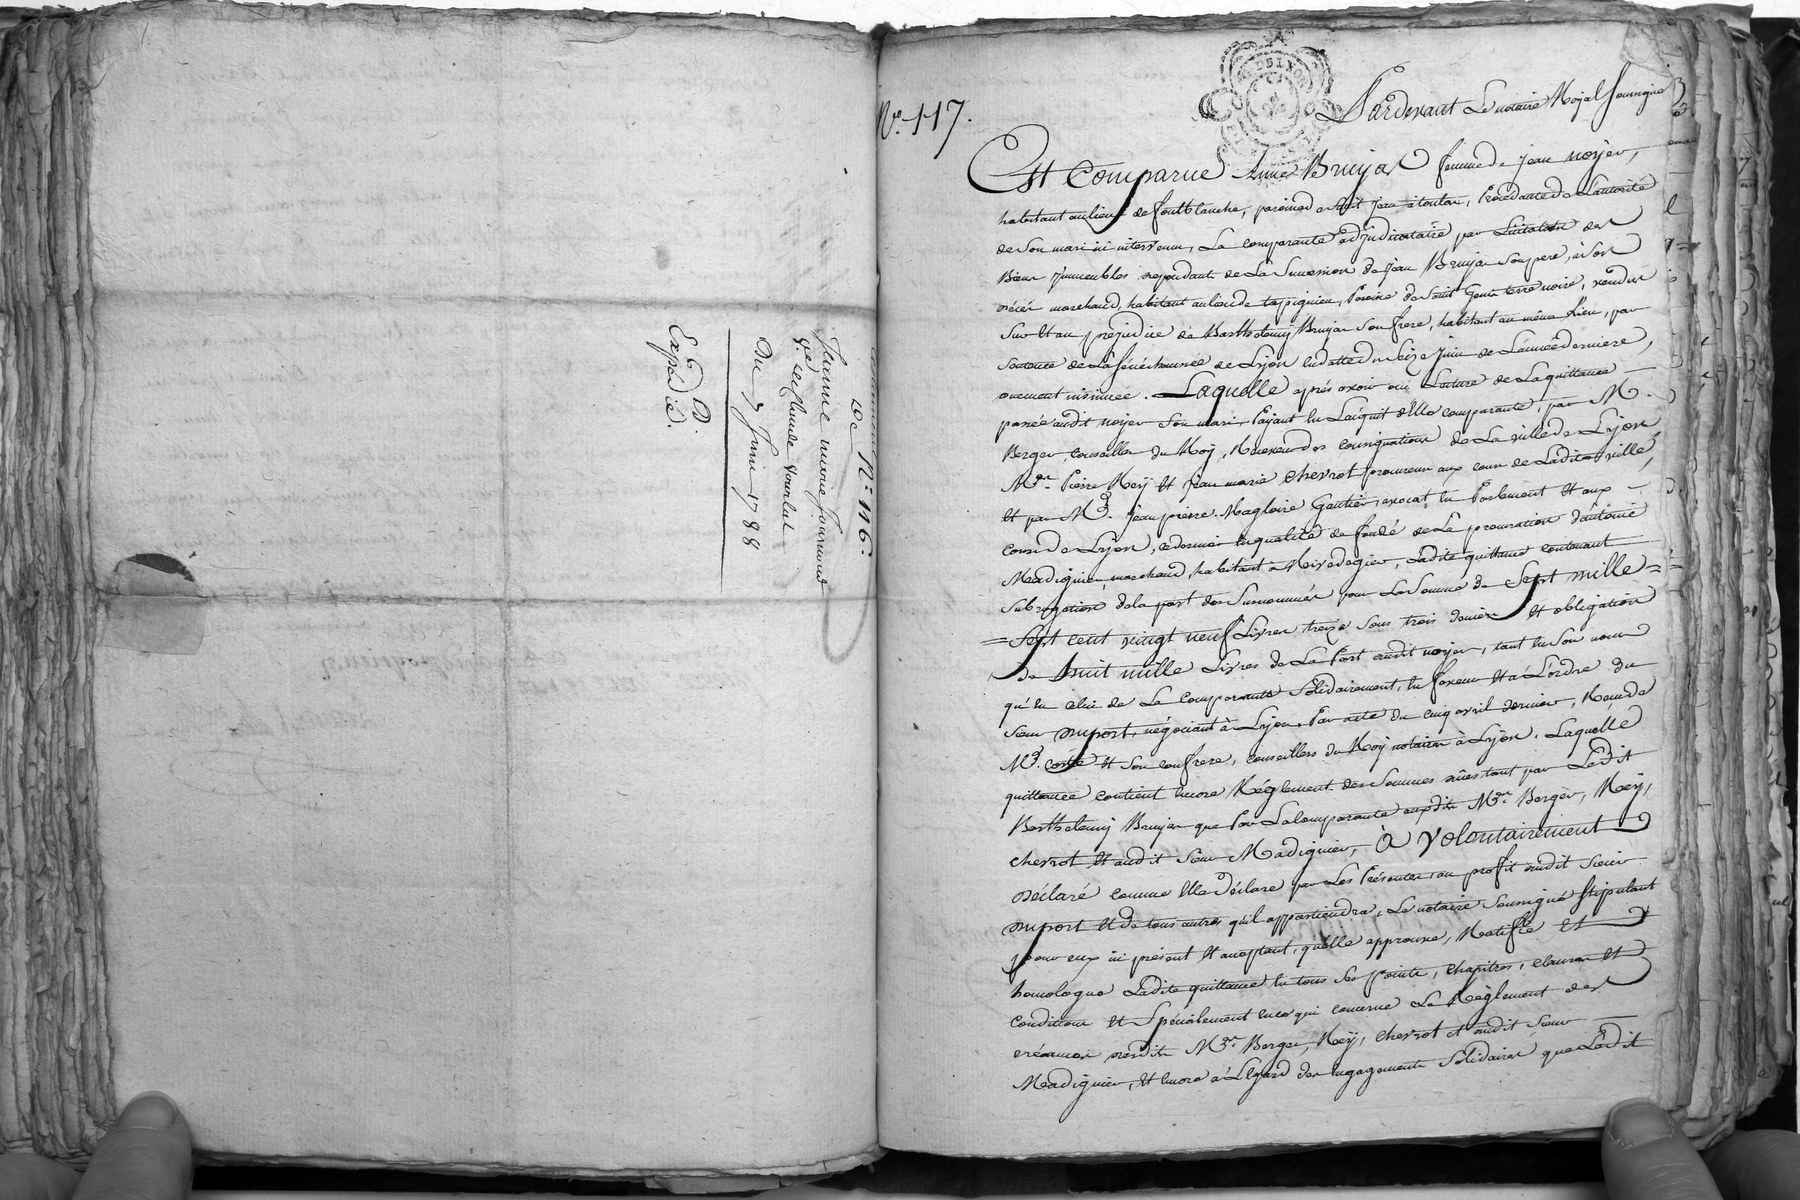 N.° 116.
De
Jeanne marie fournand
Du 7 Juin 1788
E. D.
Expédié.
N.° 117.
DE LYON
Pardevant Le notaire Royal soussigné
Est Comparue Anne Brujas femme de jean noyer,
habitant au lieu de fontblanche, paroisse de Procédante de L'autorité
de son mari ici intervenu, La comparante adjudicataire par Licitation des
Biens immeubles dependants de La Succession de jean Brujas son pere, à son
décés marchand, habitant au lieu de tapiguieu, Paroisse de Saint Genis terre noire, vendus
Sur et au préjudice de Barthelemy Brujas son frere, habitant au même Lieu, par
Sentence de La Sénéchaussée de Lyon en datte du seize juin de L'année derniere,
duement insinuée. Laquelle aprés avoir oui Lecture de La quittance
passée audit noyer son mari, Payant en L'acquit d'elle comparante, par M.
Berger, Conseiller du Roy, Receveur des consignations de La ville de Lyon,
M.rs Pierre Rey et jean marie chevrot procureurs aux cours de Ladite ville,
et par M.e jean pierre Magloire Gautier, avocat en Parlement et aux
cours de Lyon, ce dernier en qualité de fondé de La procuration d'antoine
Madiguier, marchand, habitant à Rivedegier, Ladite quittance contenant
Subrogation de la part des Surnommés pour La Somme de Sept mille
Sept cent vingt neuf Livres treize Sous trois deniers et obligation
de huit mille Livres de La Part dudit noyer, tant en Son nom
qu'en celui de La comparante Solidairement, en faveur et à L'ordre du
Sieur duport, négociant à Lyon, Par acte du cinq avril dernier, Recu de
M.e coste et Son confrere, conseillers du Roy notaires à Lyon. Laquelle
quittance contient encore Réglement des Sommes dues tant par Ledit
Barthelemy Brujas que Par La comparante auxdits M.rs Berger, Rey,
chevrot et audit Sieur Madiguier, à volontairement
Déclaré comme Elle déclare par Les Présentes, au profit dudit Sieur
duport et de tous autres qu'il appartiendra, Le notaire Soussigné Stipulant
pour eux ici présent et acceptant, qu'elle approuve, Ratifie et
homologue Ladite quittance en tous Ses Points, chapitres, clauses et
conditions et Spécialement en ce qui concerne Le Réglement des
créances desdits M.rs Berger, Rey, chevrot et dudit Sieur
Madiguier, et encore à L'égard des engagements Solidaires que Ledit